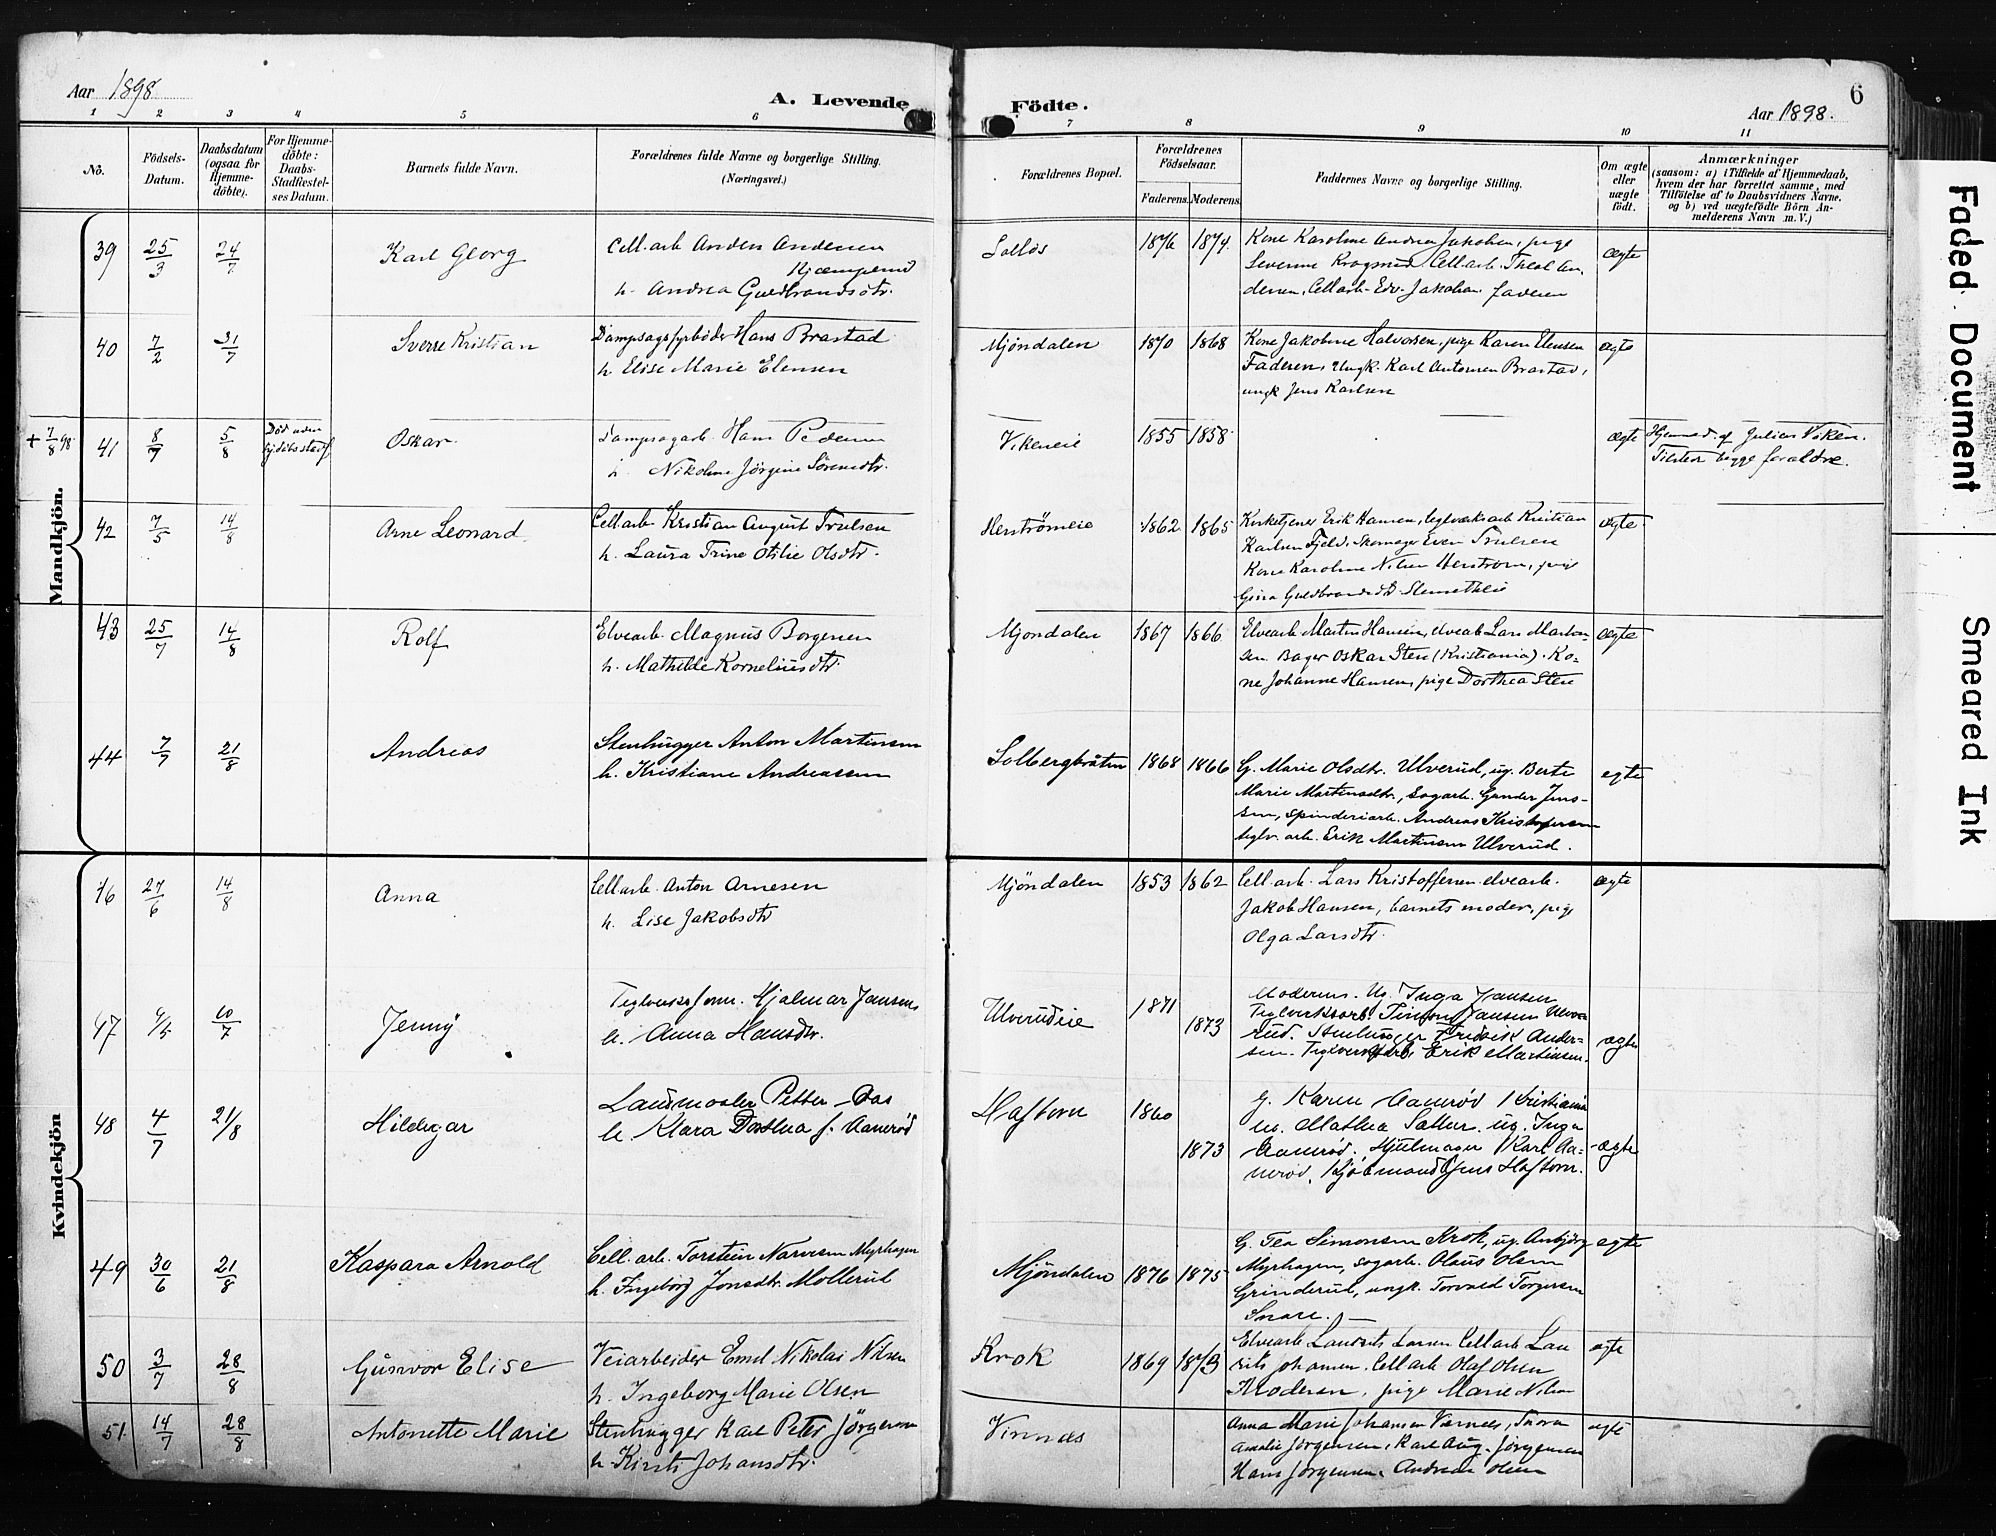 Aar 1898
A. Levende Födte.
Aar 1898.
6
1 2 3 4 5 6 7 8 9 10 11
No.
Födsels-Datum.
Daabsdatum (ogsaa for Hjemme-döbte).
For Hjemme-döbte: Daabs-Stadfæstel-ses Datum.
Barnets fulde Navn.
Forældrenes fulde Navne og borgerlige Stilling.
(Næringsvei.)
Forældrenes Bopæl.
Forældrenes Födselsaar.
Faderens. Moderens.
Faddernes Navne og borgerlige Stilling.
Om ægte eller uægte födt.
Anmærkninger
(saasom: a) i Tilfælde af Hjemmedaab,
hvem der har forrettet samme, med
Tilföielse af to Daabsvidners Navne.
og b) ved uægtefödte Börn An-
melderens Navn m. V.)
Mandkjön.
39 25/3 24/7 Karl Georg
Cell.arb. Anders Andersen
Kjæmperud
h. Andrea Guldbrandsdtr.
1876 1874
Kone Karoline Andrea Jakobsen, pige
Severine Kragsrud, Cell.arb. Andersen, Cell.arb. Edv. Jakobsen. faderen
ægte
40 7/2 31/7 Sverre Kristian
Dampsagsfyrböder Hans Brastad
h. Elise Marie Elensen
Mjöndalen 1870 1868
Kone Jakobine Halvorsen, pige Karen Elensen
Faderen, Ungk. Karl Antonsen Brastad,
ungk Jens Karlsen
ægte
+ 7/8 98. 41 8/7 5/8
Oskar
Dampsagarb. Hans Pedersen
h. Nikoline Jörgine Sörensdtr.
Vikeneie 1855 1858
ægte
Hjemmed. af Julius Viken.
Tilsted begge forældre.
42 7/5 14/8 Arne Leonard.
Cellarb. Kristian August Trulsen
h. Laura Trine Otilie Olsdtr.
Herströmeie 1862 1865
Kirketjener Erik Hansen, teglværksarb Kristian
Karlsen Fjeld, Skomager Even Trulsen
Kone Karoline Nilsen Herström, pige
Gina Guldbrandsdtr.
ægte
43 25/7 14/8 Rolf
Elvearb. Magnus Borgersen
h. Mathilde Korneliusdtr.
Mjöndalen 1867 1866
Elvearb Martin Hansen, elvearb Lars Marten-
sen. Bager Oskar Sten (Kristiania). Ko-
ne Johanne Hansen, pige Dorthea Sten
ægte
44 7/7 21/8 Andreas
Stenhugger Anton Martinsen
h. Kristiane Andreassen
Solbergbråten 1868 1866
G. Marie Olsdtr. Ulverud, ug. Berte
Marie Martinsdtr., Sagarb. Gunder Jens-
sen, Spinderiarb. Andreas Kristofersen
teglv. arb. Erik Martinsen Ulverud.
egte
Kvindekjön
46 27/6 14/8 Anna
Cellarb. Anton Arnesen
h. Lise Jakobsdtr
Mjöndalen 1853 1862
Cell.arb. Lars Kristoffersen. elvearb.
Jakob Hansen, barnets moder, pige
Olga Larsdtr.
ægte
47 4/5 10/7 Jenny
Teglverksform. Hjalmar Jansen
h. Anna Hansdtr.
Ulverudeie 1871 1873
Moderens. Ug. Inga Jansen
Teglverksarb. Jansen Ulve-
rud. Stenhugger Fredrik Ander-
sen. Teglverksarb Erik Martinsen.
ægte
48 4/7 21/8 Hildegar
Landmaaler Petter Aas
h. Klara Dorthea f. Aanerød
Haftorn 1860 1873
G. Karen Aanerød Kristiania
ug. Mathea ug. Inga
Aanerød. Hjulmager Karl Aa-
nerød, Kjöbmand Jens Haftorn.
ægte
49 30/6 21/8 Kaspara Arnold
Cell. arb. Torstein Narvesen Myrhagen
h. Ingeborg Jonsdtr. Mollerud
Mjöndalen 1876 1875
G. Tea Simonsen Krok, ug. Anbjörg
Myrhagen, sagarb. Olaus Olsen
Grinderud, ungk. Torvald Torgersen
Snare.
egte
50 3/7 28/8 Gunvor Elise
Veiarbeider Emil Nikolai Nilsen
h. Ingeborg Marie Olsen
Krok 1869 1873
Elvearb Laurits Larsen Cellarb Lau
rits Johansen. Cellarb Olaf Olsen
Moderen, pige Marie Nilsen
egte
51. 14/7 28/8 Antonette Marie
Stenhugger Karl Peter Jörgensen
h. Kirsti Johansdtr.
Vinnæs
Anna Marie Johansen
Amalie Jörgensen, Karl Aug. Jörgensen
Hans Jörgensen, Olsen
egte
Faded Document
Smeared Ink